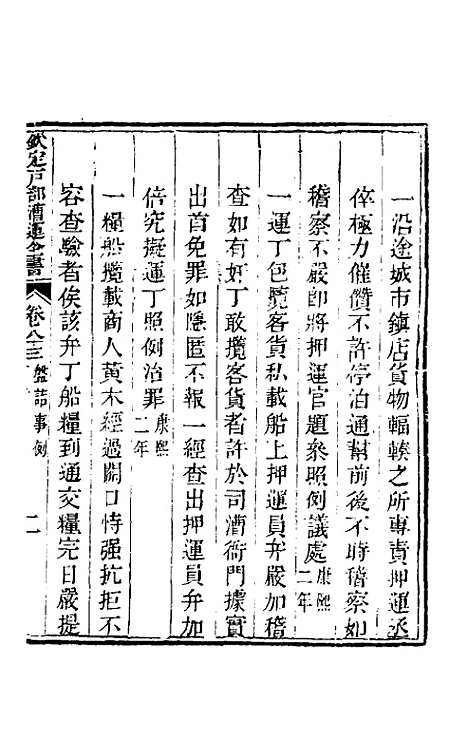 一沿途城市鎭店貨物輻輳之所專責押運丞
倅極力催儹不許停泊通幫前後不時稽察如
稽察不嚴卽將押運官題叅照例議處康熙二年
一運丁包攬客貨私載船上押運員弁嚴加稽
查如有奸丁敢攬客貨者許於司漕衙門據實
出首免罪如隱匿不報一經查出押運員弁加
倍究擬運丁照例治罪康熙二年
一糧船攬載商人黃木經過關口恃强抗拒不
容查驗者俟該弁丁船糧到通交糧完日嚴提
欽定戸部漕運全書 卷八十三 盤詰事例 二